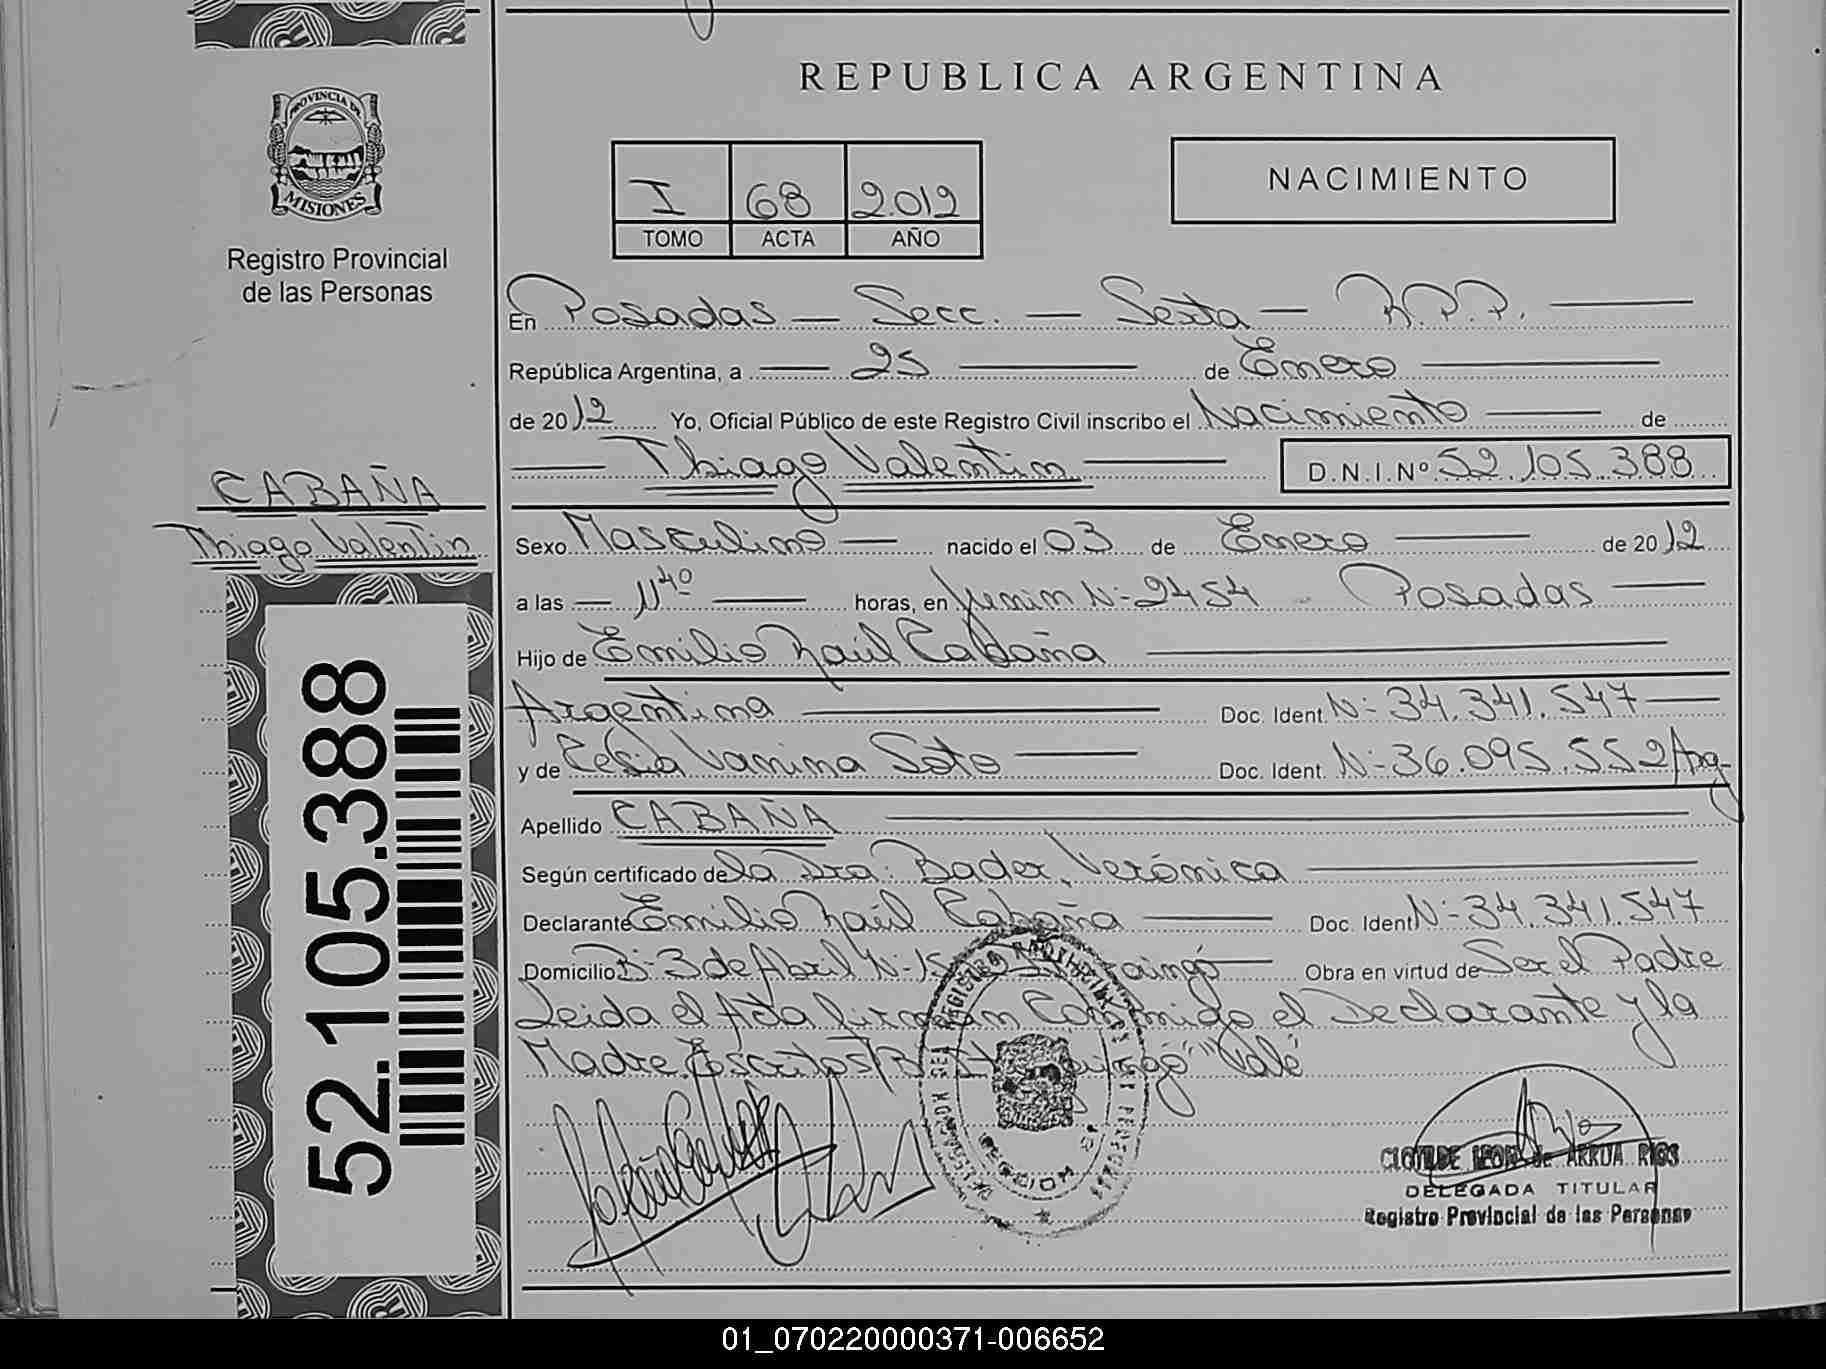 REPUBLICA ARGENTINA
PROVINCIA DE
MISIONES
Registro Provincial
de las Personas
I 68 2.012
TOMO ACTA AÑO
NACIMIENTO
En Posadas — Secc. — Sexta — R.P.P. —
República Argentina, a — 25 — de Enero —
de 2012 Yo, Oficial Público de este Registro Civil inscribo el Nacimiento — de
— Thiago Valentin — D.N.I.Nº 52.105.388
CABAÑA
Thiago Valentin
52.105.388
Sexo Masculino — nacido el 03 de Enero — de 2012
a las — 11⁴⁰ — horas, en Junin N-2454 - Posadas —
Hijo de Emilio Raúl Cabaña —
Argentina — Doc. Ident. N-34.341.547 —
y de Vanina Soto — Doc. Ident. N-36.095.552/Arg-
Apellido CABAÑA —
Según certificado de la Dra. Bader, Verónica —
Declarante Emilio Raúl Cabaña — Doc. Ident N-34.341.547
Domicilio B- 3 de Abril N-15 — Obra en virtud de Ser el Padre
Leida el Acta firman Conmigo el Declarante y la
Madre. Escritos "Vale
CLOTILDE LEON de ARRUA RIOS
DELEGADA TITULAR
Registro Provincial de las Personas
01_070220000371-006652